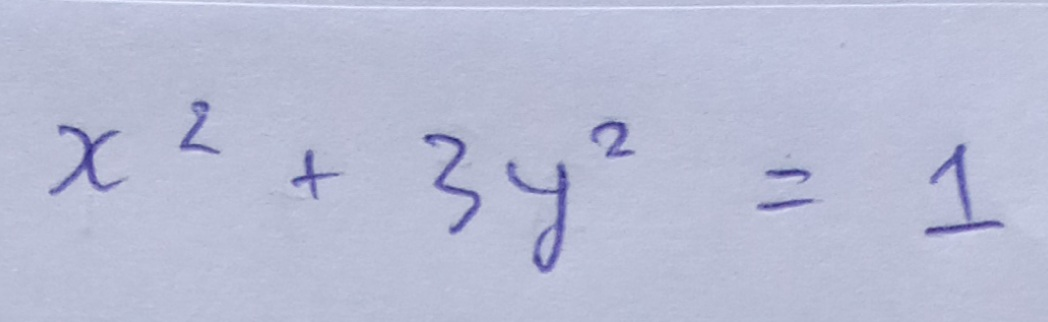 x² + 3y² = 1